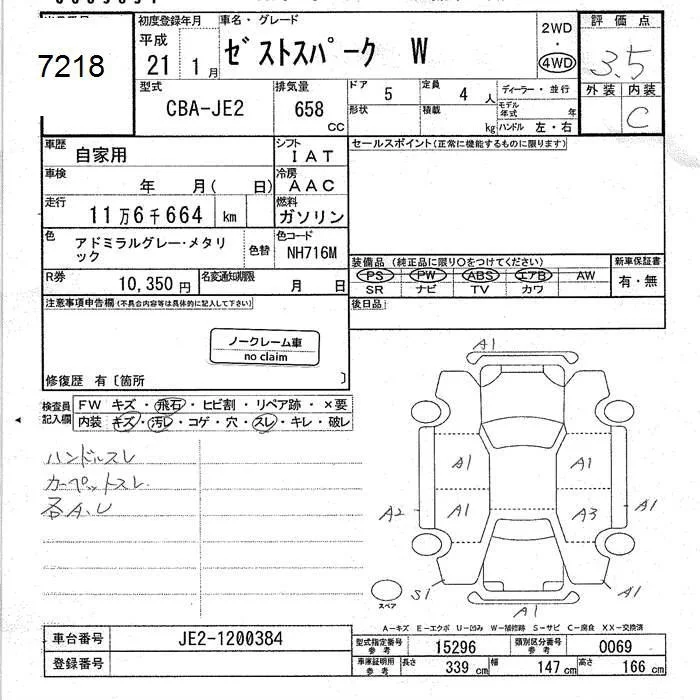 7218
初度登録年月
平成
21 1月
車名・グレード
ゼストスパーク W
2WD
・
4WD
評価点
3.5
外装 内装
C
型式
CBA-JE2
排気量
658
CC
ドア
5
定員
4 人
形状
積載
kg
ディーラー・並行
モデル年式 年
ハンドル 左・右
車歴
自家用
シフト
IAT
車検
年 月( 日)
冷房
AAC
走行
11万6千664 km
燃料
ガソリン
色
アドミラルグレー・メタリック
色替
色コード
NH716M
R券
10,350円
名変通知期限
月 日
セールスポイント(正常に機能するものに限ります)
装備品(純正品に限り○をつけてください)
PS PW ABS エアB AW
SR ナビ TV カワ
新車保証書
有・無
後日品
注意事項申告欄(不具合内容等は具体的に記入して下さい)
ノークレーム車
no claim
修復歴 有〔箇所 〕
検査員記入欄
FW キズ・飛石・ヒビ割・リペア跡・×要
内装 キズ・汚レ・コゲ・穴・スレ・キレ・破レ
ハンドルスレ
カーペットスレ
各A.U
A1
A1
A1
A2
A1
A3
A1
S1
A1
A1
スペア
A−キズ E−エクボ U−凹み W−補修跡 S−サビ C−腐食 XX−交換済
車台番号
JE2-1200384
登録番号
型式指定番号 参考
15296
類別区分番号 参考
0069
車庫証明用 参考
長さ 339 cm
幅 147 cm
高さ 166 cm